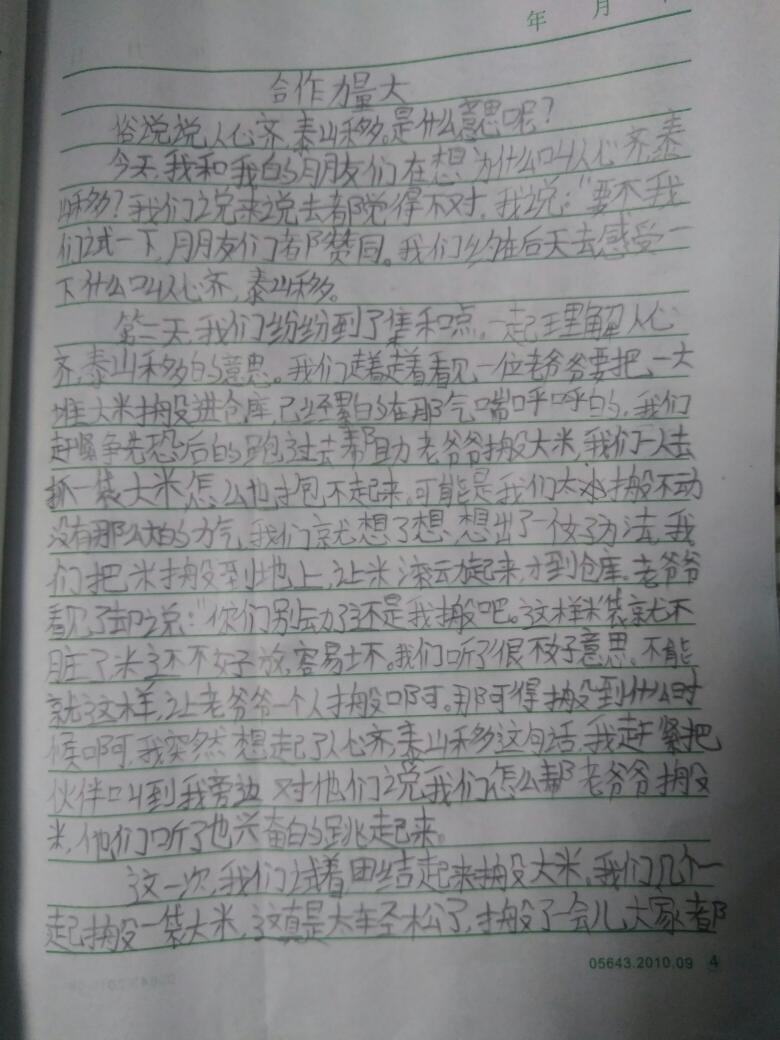 年 月
合作力量大
俗说说人心齐,泰山移。是什么意思呢?
今天,我和我的朋友们在想为什么叫人心齐,泰
山移?我们说来说去都觉得不对,我说:“要不我
们试一下,朋友们都赞同。我们约在后天去感受一
下什么叫人心齐,泰山移。
第二天,我们纷纷到了集和点,一起理解人心
齐,泰山移的意思。我们走着走着看见一位老爷爷要把一大
堆大米搬进仓库,已经累的在那气喘呼呼的,我们
赶紧争先恐后的跑过去帮助老爷爷搬大米,我们一人去
抓一袋大米怎么也抱不起来,可能是我们太小搬不动
没有那么大的力气,我们就想了想,想出了一个好方法,我
们把米搬到地上,让米滚动起来,才到仓库。老爷爷
看见了却说:“你们别动了还是我搬吧。这样米袋就不
脏了米还不好放,容易坏。我们听了很不好意思,不能
就这样,让老爷爷一个人搬啊。那可得搬到什么时
候啊,我突然想起了人心齐,泰山移这句话,我赶紧把
伙伴叫到我旁边对他们说我们怎么帮老爷爷搬
米,他们听了也兴奋的跳起来。
这一次,我们试着团结起来搬大米,我们几个一
起搬一袋大米,这真是太轻松了,搬了一会儿,大家都
05643.2010.09 4